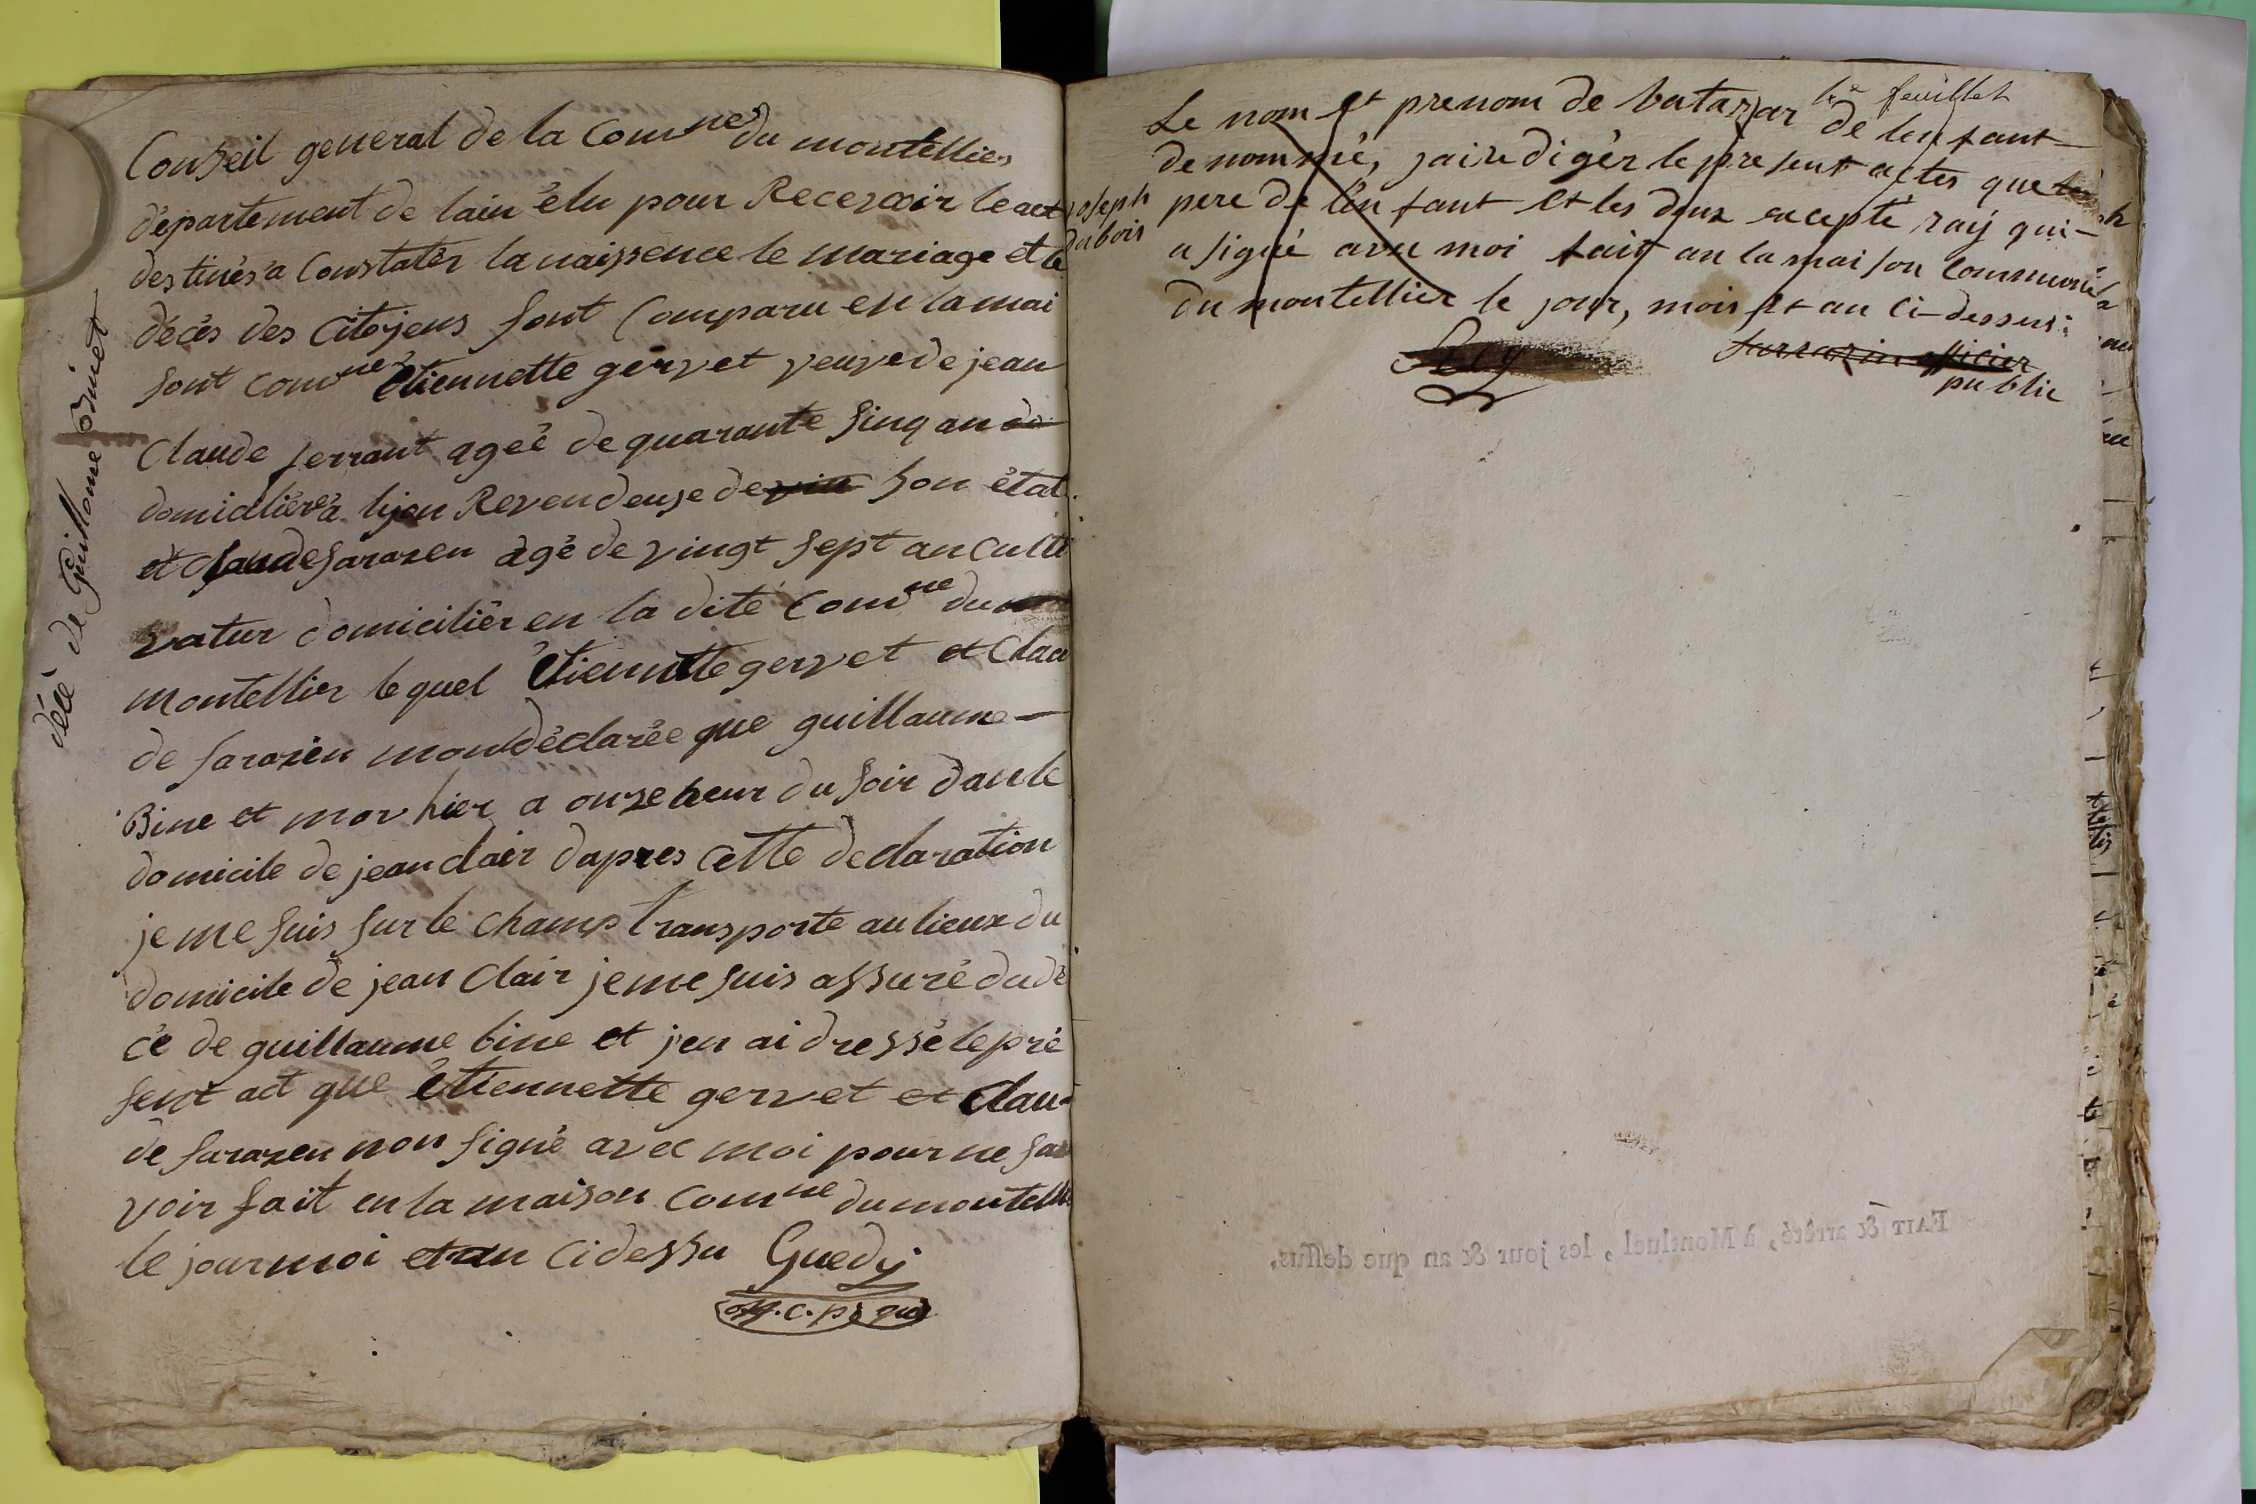 Conseil general de la Comne du montellier
département de lain élu pour Recevoir le act
destinés a Constatér la naissence le mariage et le
décés des Citojens sont Comparu en la mai
sont comne Etiennette gervet veuve de jean
Claude ferrant agéé de quarante sinq an
domicilière a lyon Revendeuse de vin son état
et claude sarazen àgé de vingt sept an culti
vatur domicilièr en la dité comne du
montellier le quel Étiennette gervet et Clau
de sarazien mon déclarée que guillaume
Bine et mor hier a onze heur du soir dan le
domicile de jean clair dapres cette declaration
je me suis sur le champ transporte au lieux du
domicile de jean Clair je me suis assuré du dé
cé de guillaume bine et jen ai dressé le pré
sent act que étiennette gervet et clau-
de sarazen non signé avec moi pour ne sa
voir fait en la maison comne du montelli
le jour moi et an ci dessu Guedy
off. c. p
décé de Guillaume Binet
joseph
dubois
1er feuillet
Le nom et prenom de batazar de lenfant
denommé, jai rediger le present actes que
pere de l'enfant et les deux excepté ray qui
a signé avec moi fait an la maison commune
du montellier le jour, mois et an ci-dessus:
sarrazin officier
public
FAIT & arrêté, à Montluel, les jour & an que dessus,